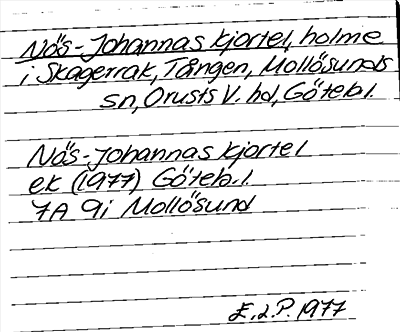 Nös-Johannas kjortel, holme
i Skagerrak, Tången, Mollösunds
sn, Orusts V. hd, Göteb.l.
Nös-Johannas kjortel
ek (1977) Göteb.l.
7A 9i Mollösund
1977